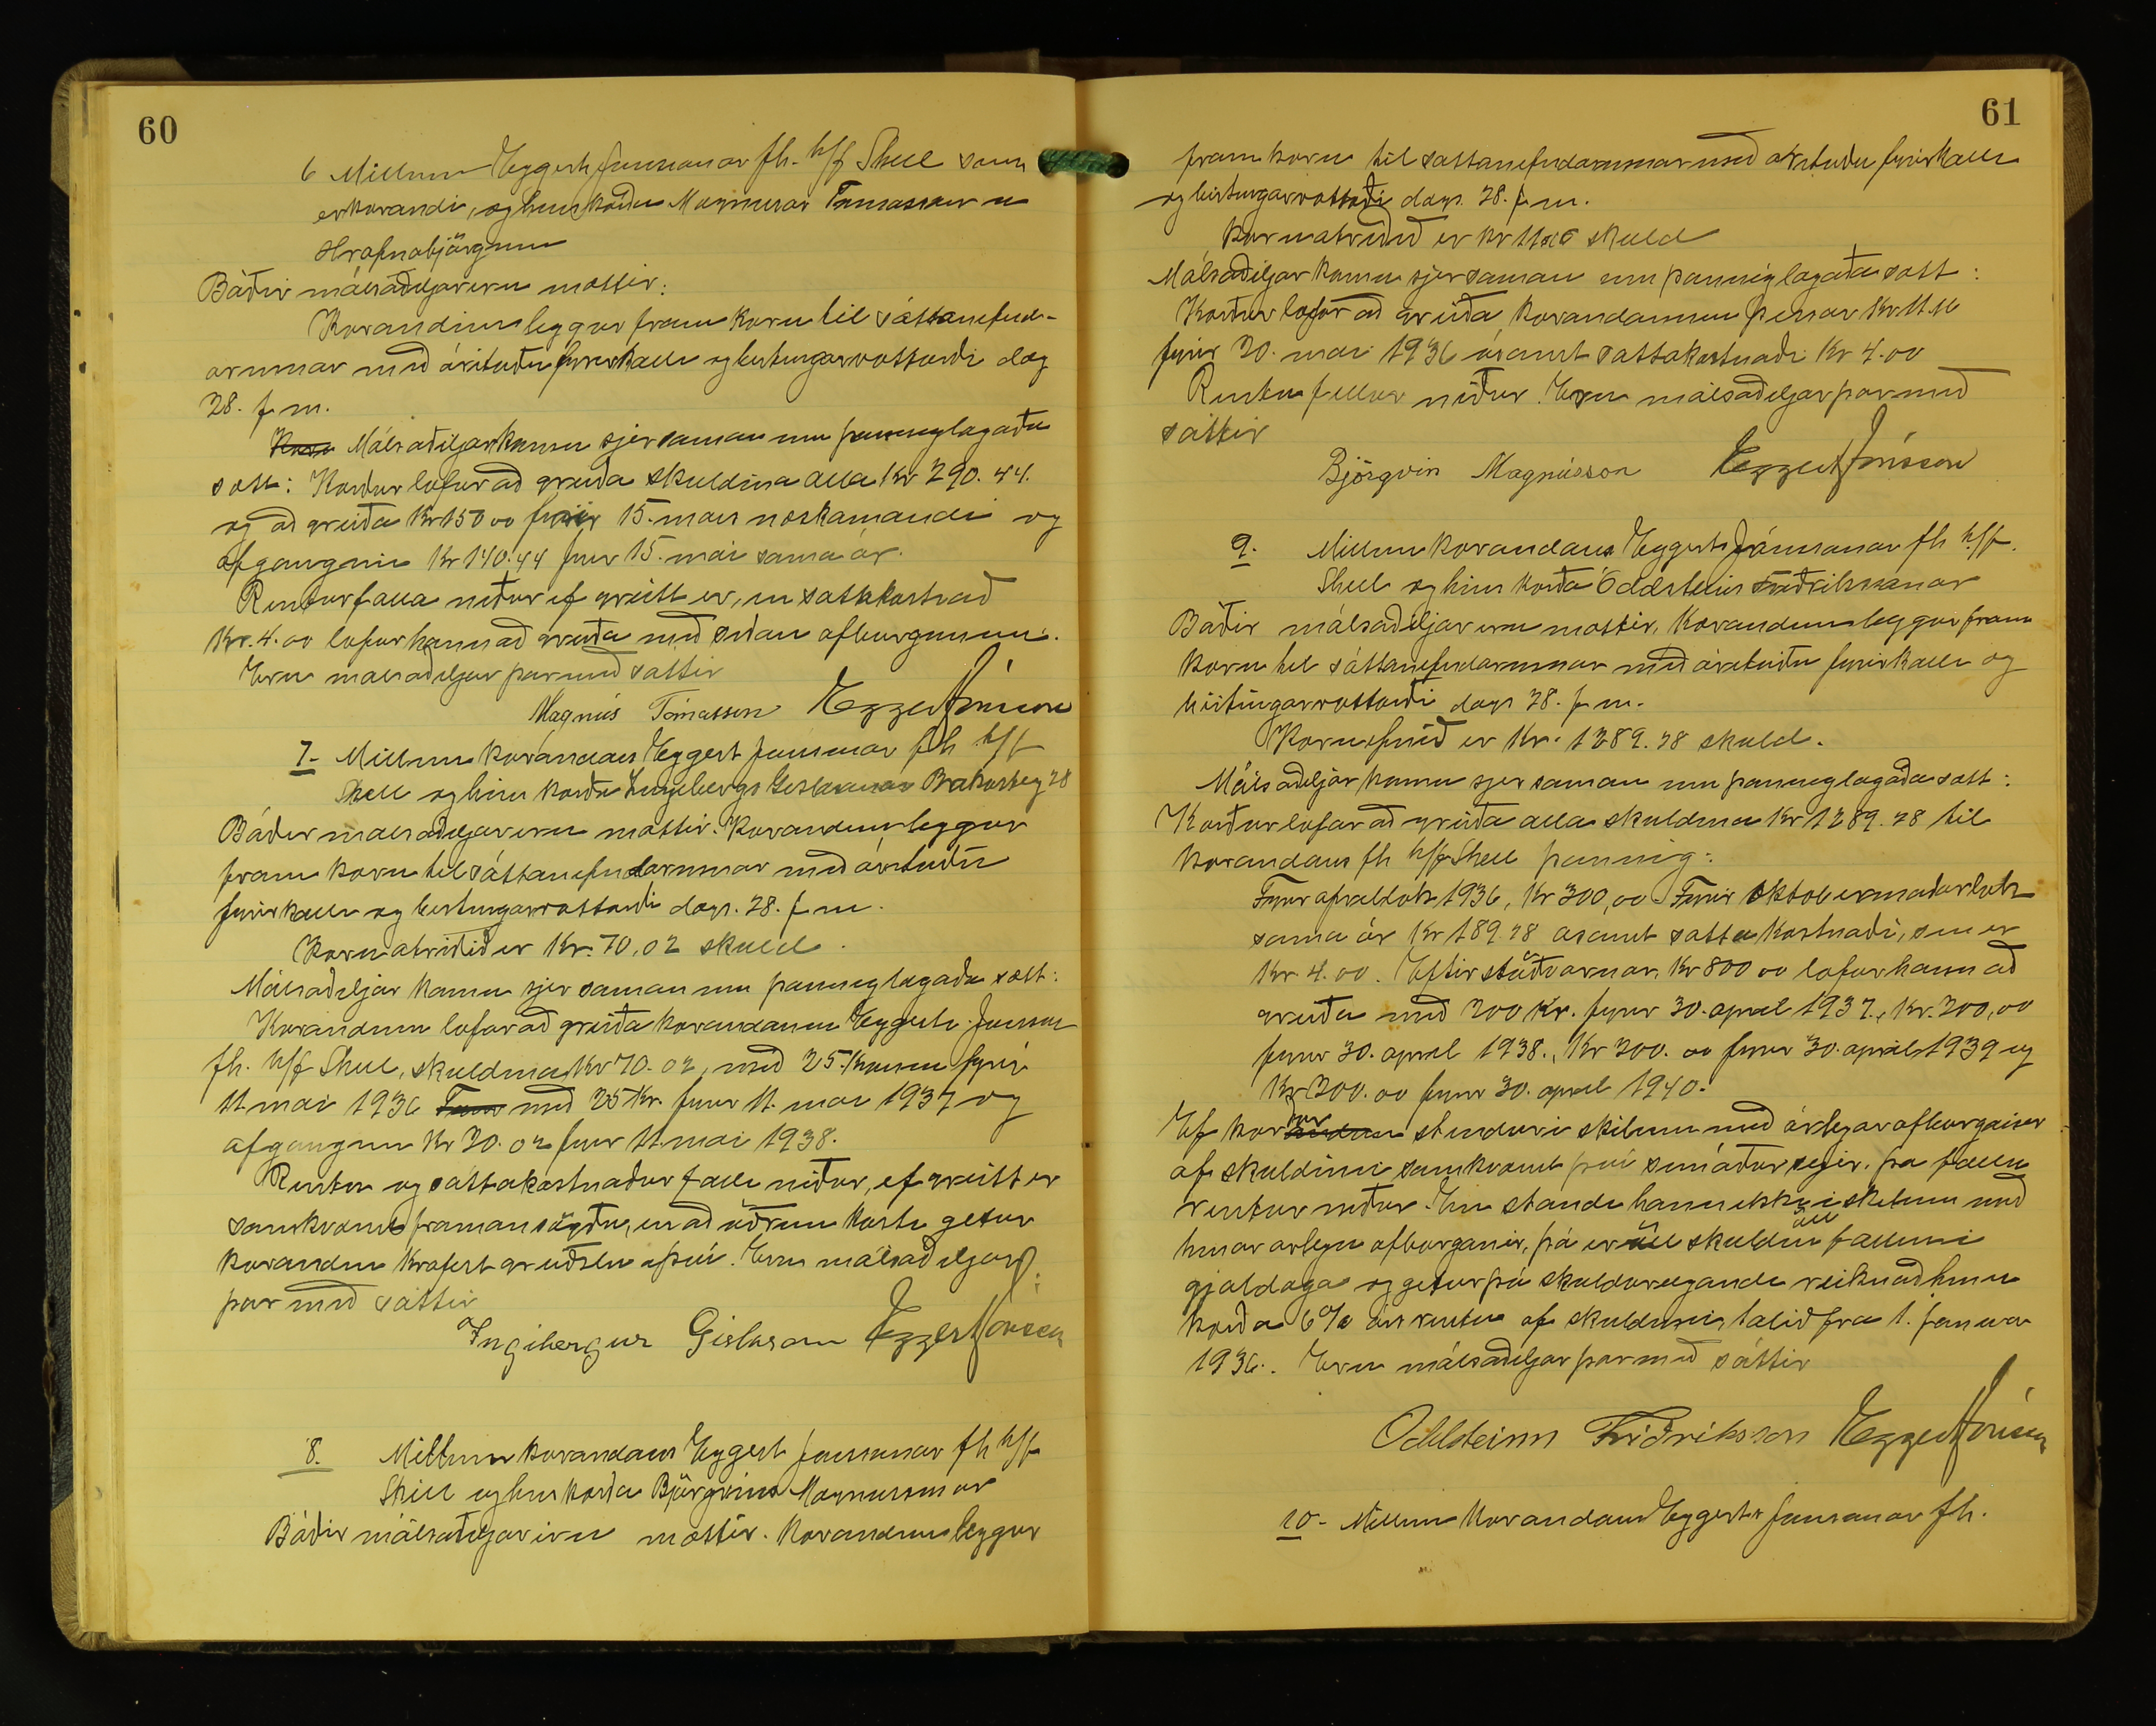 60
6 Millum Eggerts Jónssonar fh. h/f Shell sem
er kærandi, og hins kærða Magnusar Tómassonar
Hrafnabjörgum
Báðir málsaðiljar eru mættir.
Kærandinn leggur fram kæru til sáttanefnd-
arinnar með árituðu fyrirkalli og birtingarvottorði dag
28. f. m.
Málsaðiljar komu sjer saman um þannig lagaða
sætt: Kærður lofar að greiða skuldina alla Kr 290.44.
og að greiða Kr 150 00 fyrir 15. mars næskomandi og
afganginn Kr 140.44 fyrir 15. mai sama ár.
Rentur falla niður ef greitt er, en sáttakostnað
Kr. 4.00 lofar hann að greiða með síðari afborguninni.
Eru málsaðiljar þar með sáttir
Magnús Tómasson Eggert Jónsson
7- Millum kærandans Eggert Jónssonar fh h/f
Shell og hins kærða Ingibergs Gíslasonar 28
Báðir málsaðiljar eru mættir. Kærandinn leggur
fram kæru til sáttanefndarinnar með árituðu
fyrirkalli og birtingarvottorði dags. 28. f. m.
Kæruatriðið er Kr. 70,02 skuld.
Málsaðiljar komu sjer saman um þannig lagaða sætt:
Kærandinn lofar að greiða kærandanum Eggerti Jónssyni
fh. h/f Shell, skuldina Kr 70.02, með 25. Krónum fyrir
11 mai 1936 með 25 Kr. fyrir 11. mai 1937 og
afganginn Kr 20.02 fyrir 11. mai 1938.
Rentu og sáttakostnaður falli niður, ef greitt er
samkvæmt framansögðu, en að öðrum kosti getur
kærandinn krafist greiðslu á því. Eru málsaðiljar
þar með sáttir
Ingibergur Gíslason Eggert Jónsson
8. Millum kærandans Eggert Jónssonar fh h/f
Shell og hins kærða Björgvins Magnussonar
Báðir málsaðiljar eru mættir. Kærandinn leggur
61
fram kæru til sáttanefndarinnar með árituðu fyrirkalli
og birtingarvottorði dags. 28. f. m.
Kæruatriðið er kr skuld
Málsaðiljar komu sjer saman um þannig lagaða sætt:
Kærður lofar að greiða kærandanum þessar Kr
fyrir 20. mai 1936 ásamt sáttakostnaði Kr 4.00
Rentu fellur niður. Eru málsaðiljar þar með
sáttir
Björgvin Magnússon Eggert Jónsson
9. Millum kærandans Eggerts Jónssonar fh h/f.
Shell og hins kærða Oddsteins Friðrikssonar
Báðir málsaðiljar eru mættir. Kærandinn leggur fram
kæru til sáttanefndarinnar með árituðu fyrirkalli og
birtingarvottorði dags 28. f. m.
Kæruefnið er Kr. 1289.28 skuld.
Málsaðiljar komu sjer saman um þannig lagaða sætt:
Kærður lofar að greiða alla skuldina Kr 1289.28 til
kærandans fh h/f Shell þannig:
Fyrir aprillok 1936, Kr 300,00 Fyrir oktobermánaðarlok
sama ár Kr 189.28 ásamt sáttakostnaði, sem er
Kr 4.00. Eftirstöðvarnar, Kr 800 00 lofar hann að
greiða með 200 Kr. fyrir 30. april 1937., Kr. 200,00
fyrir 30. april 1938., Kr 200.00 fyrir 30. april 1939 og
Kr 200.00 fyrir 30. april 1940.
Ef kærður stendur í skilum með árlegar afborganir
af skuldinni samkvæmt því sem áður segir, þá falla
rentur niður. En standi hann ekki í skilum með
hinar árlegu afborganir, þá er öll skuldin fallin í
gjalddaga og getur þá skuldareigandi reiknað hinum
kærða 6% árs rentu af skuldinni, talið frá 1. januar
1936. Eru málsaðiljar þar með sáttir
Oddsteinn Friðriksson Eggert Jónsson
10- Millum kærandans Eggerts Jónssonar fh.